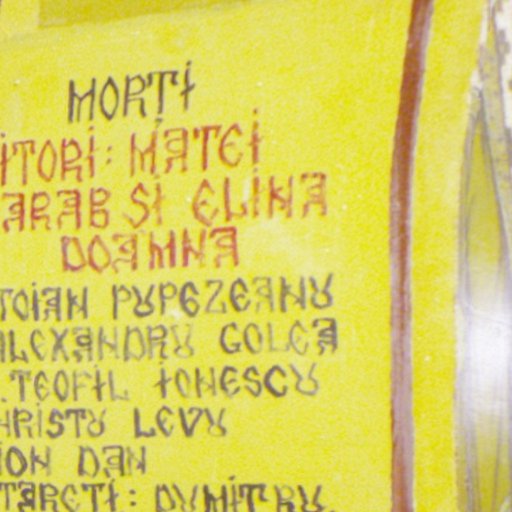 MORȚI
ITORI: MATEI
ARAB ȘI ELINA
DOAMNA
TOIAN PUPEZEANU
ALEXANDRU GOLEA
.TEOFIL IONESCU
HRISTU LEVU
ION DAN
TAREȚI: DUMITRU.